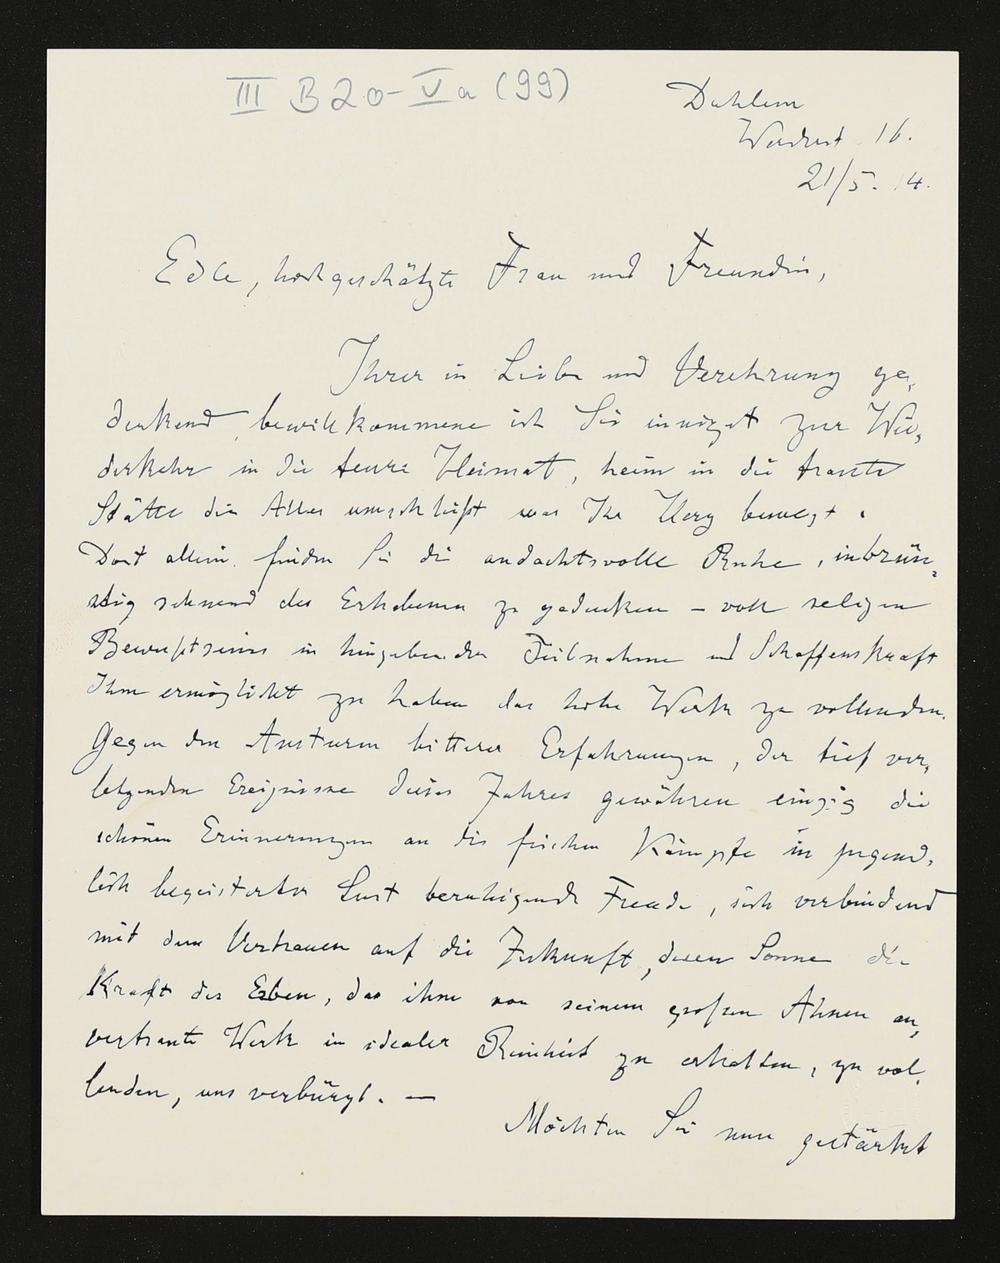 III B 20 - Va (99)
Dahlem
Werderst. 16.
21/5. 14.
Edle, hochgeschätzte Frau und Freundin,
Ihrer in Liebe und Verehrung ge-
denkend, bewillkommene ich Sie innigst zur Wie-
derkehr in die teure Heimat, heim in die traute
Stätte die Alles umschließt was Ihr Herz bewegt.
Dort allein finden Sie die andachtsvolle Ruhe, inbrün-
stig sehnend des Erhabenen zu gedenken – voll seligen
Bewußtseins in hingebender Teilnahme und Schaffenskraft
Ihm ermöglicht zu haben das hohe Werk zu vollenden.
Gegen den Ansturm bitterer Erfahrungen, der tief ver-
letzenden Ereignisse dieses Jahres gewähren einzig die
schönen Erinnerungen an die frischen Kämpfe in jugend-
lich begeisterter Lust beruhigende Freude, sich verbindend
mit dem Vertrauen auf die Zukunft, deren Sonne die
Kraft des Erben, das ihm von seinem großen Ahnen an-
vertraute Werk in idealer Reinheit zu erhalten, zu vol-
lenden, uns verbürgt. —
Möchten Sie nun gestärkt